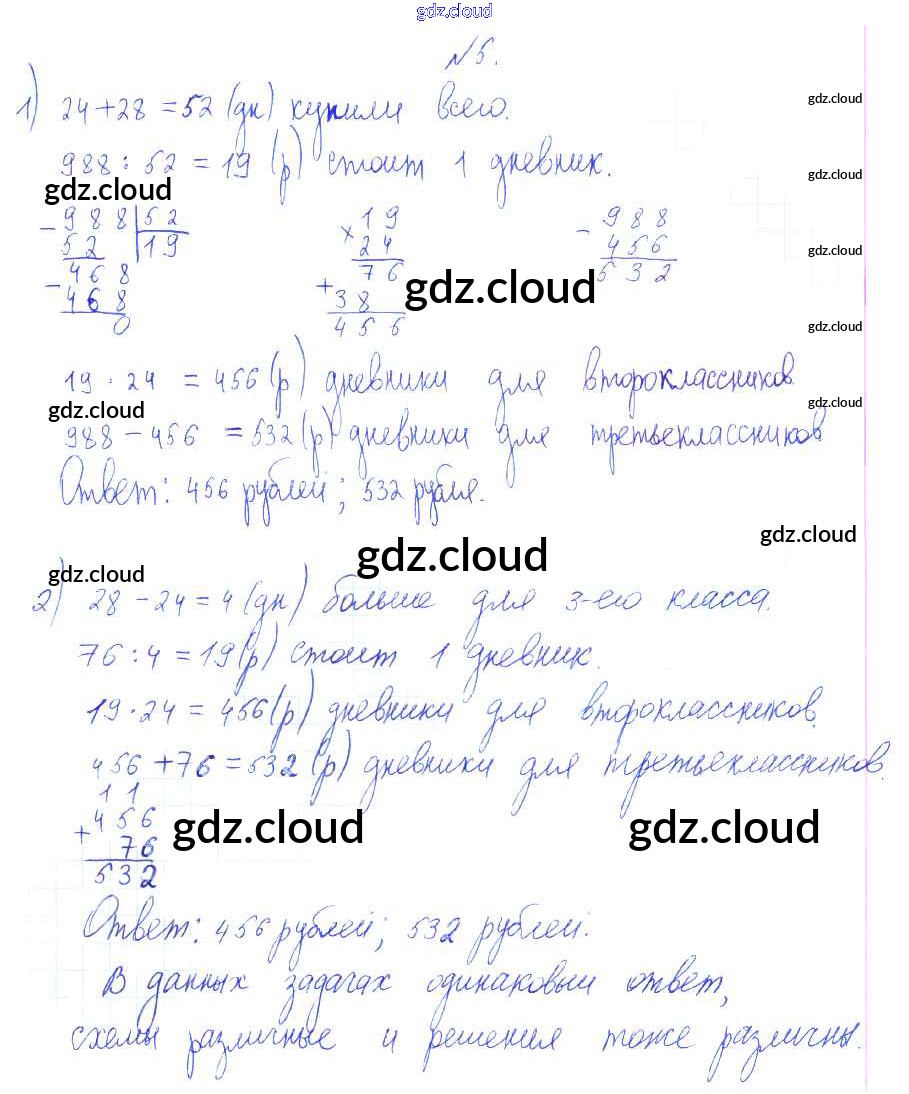 gdz.cloud
№5.
gdz.cloud
1) 24+28=52 (дн) купили всего.
988:52=19 (р) стоит 1 дневник.
gdz.cloud
gdz.cloud
−988|52
52 |19
−468
468
0
×19
24
76
+
38
456
−988
456
532
gdz.cloud
gdz.cloud
gdz.cloud
19·24=456(р) дневники для второклассников
gdz.cloud
gdz.cloud
988−456=532(р) дневники для третьеклассников
Ответ: 456 рублей; 532 рубля.
gdz.cloud
gdz.cloud
gdz.cloud
2) 28−24=4(дн) больше для 3-его класса.
76:4=19(р) стоит 1 дневник.
19·24=456(р) дневники для второклассников.
456+76=532(р) дневники для третьеклассников.
11
+456
76
532
gdz.cloud
gdz.cloud
Ответ: 456 рублей; 532 рублей.
В данных задачах одинаковый ответ,
схемы различные и решения тоже различны.